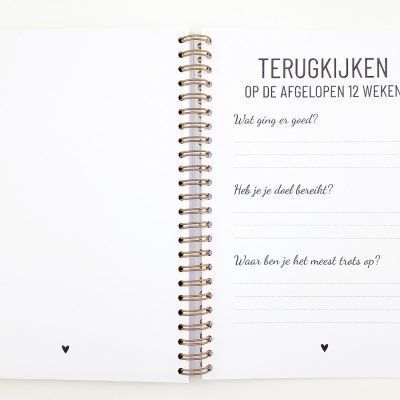 TERUGKIJKEN
OP DE AFGELOPEN 12 WEKEN
Wat ging er goed?
Heb je je doel bereikt?
Waar ben je het meest trots op?